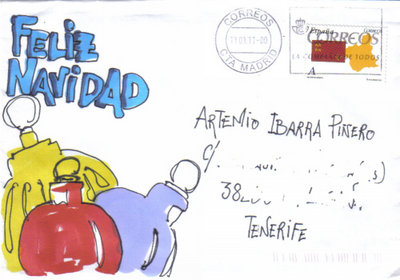 FELIZ
NAVIDAD
CORREOS
CTA MADRID
España
CORREOS
LA COMPAÑIA DE TODOS
A
ARTEMIO IBARRA PIÑERO
C/
38
TENERIFE